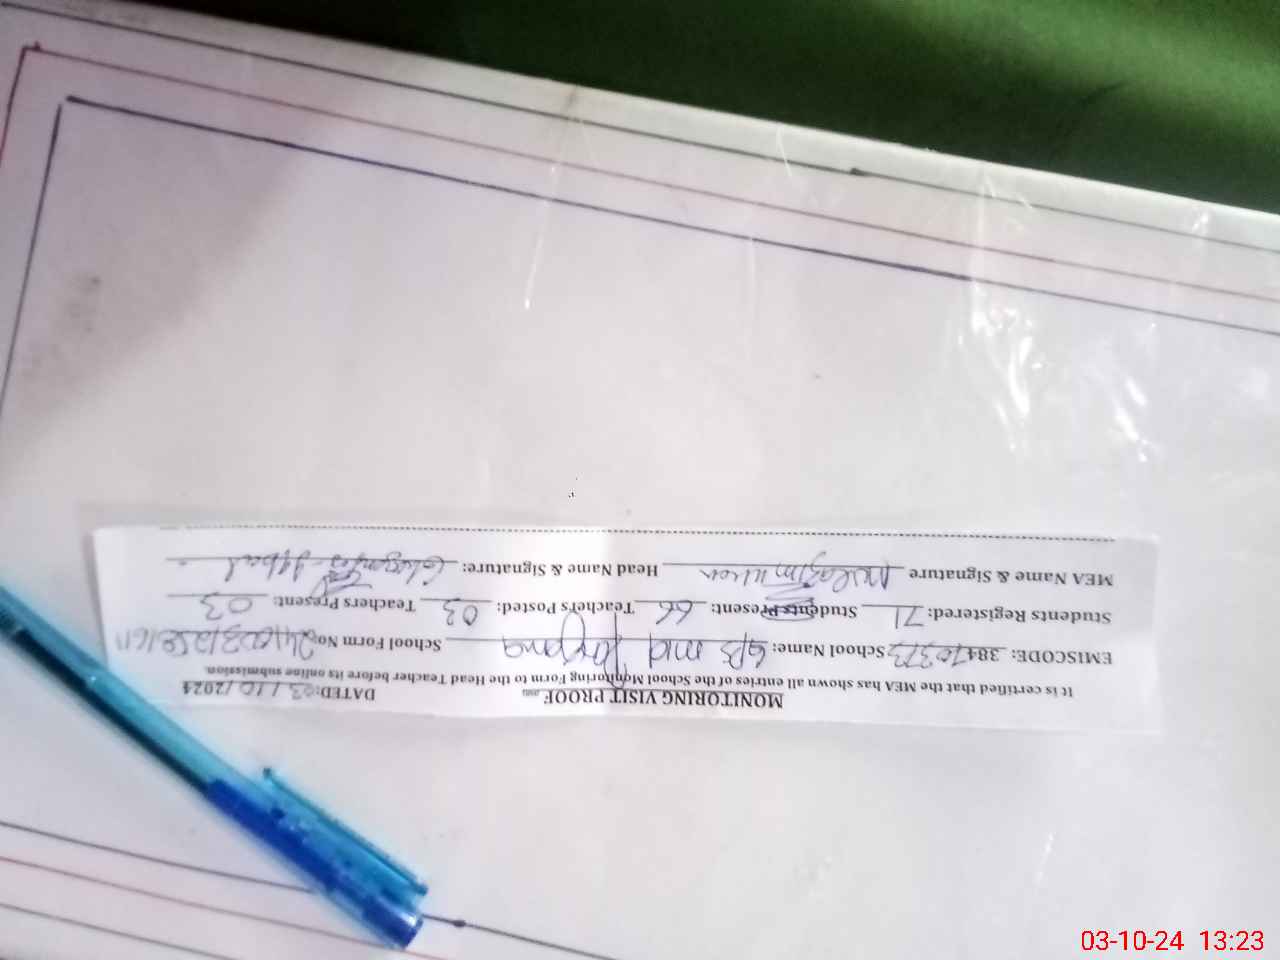 MONITORING VISIT PROOF
DATED: 03/10/2024
It is certified that the MEA has shown all entries of the School Monitoring Form to the Head Teacher before its online submission.
EMISCODE: 38470373 School Name: GPS md School Form No
Students Registered: 71 Students Present: 66 Teachers Posted: 03 Teachers Present: 03
MEA Name & Signature Head Name & Signature:
03-10-24 13:23